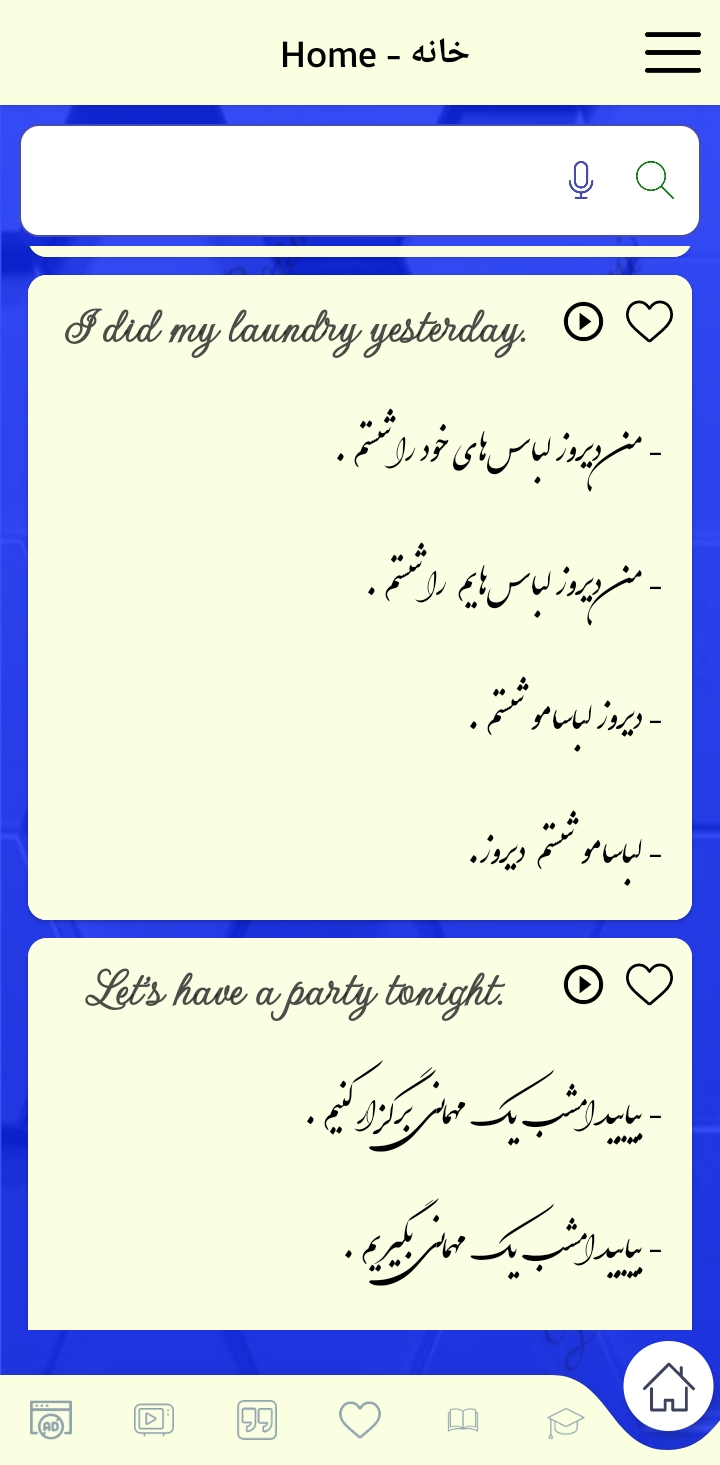 Home - خانه
I did my laundry yesterday.
- من دیروز لباس‌های خود را شستم .
- من دیروز لباس‌هایم را شستم .
- دیروز لباسامو شستم .
- لباسامو شستم دیروز.
Let's have a party tonight.
- بیایید امشب یک مهمانی برگزار کنیم .
- بیایید امشب یک مهمانی بگیریم .
AD